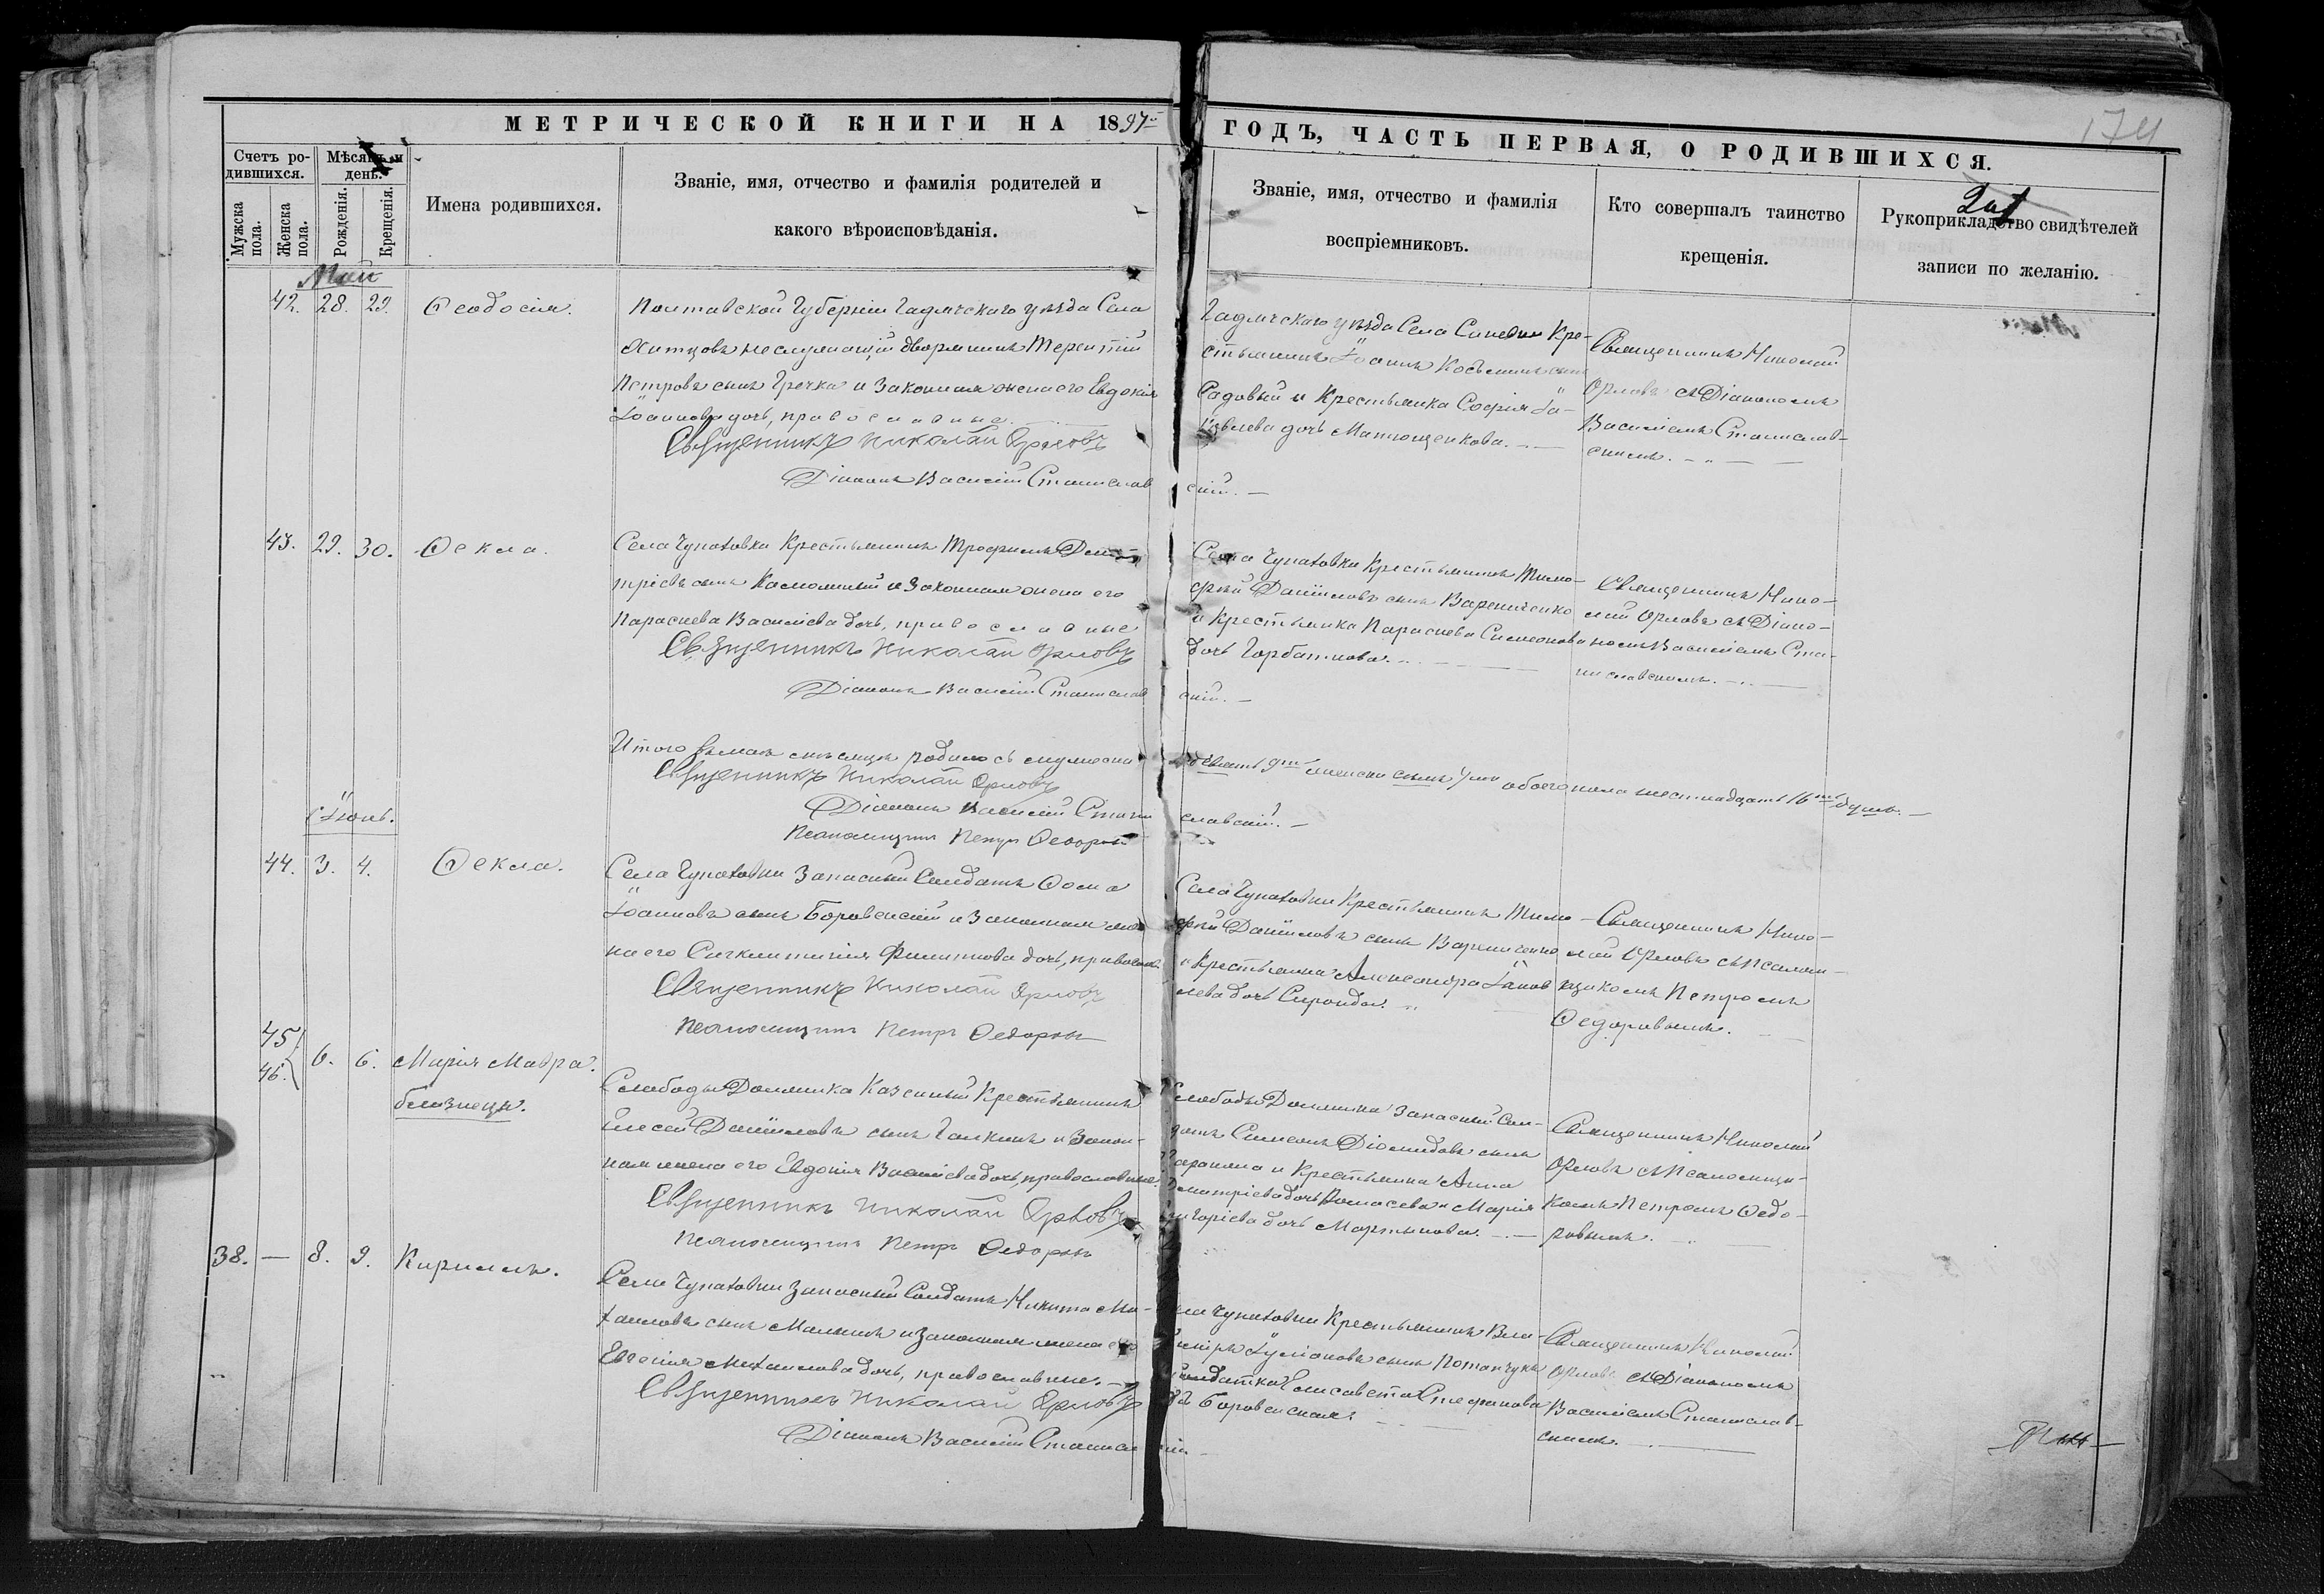 МЕТРИЧЕСКОЙ КНИГИ НА 1897й
ГОДЪ, ЧАСТЬ ПЕРВАЯ, О РОДИВШИХСЯ.
174
Счетъ ро-
дившихся.
Мужска пола.
Женска пола.
Мѣсяцъ и день.
Рожденія.
Крещенія.
Имена родившихся.
Званіе, имя, отчество и фамилія родителей и
какого вѣроисповѣданія.
Званіе, имя, отчество и фамилія
воспріемниковъ.
Кто совершалъ таинство
крещенія.
Рукоприкладство свидѣтелей
записи по желанію.
Май
42. 28. 29. Ѳеодосія.
Полтавской Губерніи Гадячскаго уѣзда Села
неслужащій дворянинъ Терентій
Петровъ сынъ Гречка и Законная жена его Евдокія
Іоаннова дочь, православные
Священникъ Николай Орловъ
Діаконъ Василій Станислав
скій.
Гадячскаго уѣзда Села Кре-
стьянинъ Іоаннъ Косьминъ сынъ
Садовый и Крестьянка Софія Іа-
ковлева дочь Матющенкова.
Священникъ Николай
Орловъ съ Діакономъ
Василіемъ Станислав-
скимъ.
43. 29. 30. Ѳекла.
Села Чупаховка Крестьянинъ Трофимъ Дими-
тріевъ сынъ и Законная жена его
Параскева Василіева дочь, православные
Священникъ Николай Орловъ
Діаконъ Василій Станислав
скій.
Села Чупаховки Крестьянинъ Тимо-
фей Даніиловъ сынъ Варениченко
и Крестьянка Параскева Симеонова
дочь Горбаткова.
Священникъ Нико-
лай Орловъ съ Діако-
номъ Василіемъ Ста-
ниславскимъ.
Итого въ маѣ мѣсяцѣ родилось мужеска
девять 9ть женска семь 7мь обоего пола шестнадцать 16ть душъ.
Священникъ Николай Орловъ
Діаконъ Василій Стани
славскій.
Псаломщикъ Петръ Ѳедоровъ
Іюнь.
44. 3. 4. Ѳекла.
Села Чупаховки Запасный Солдатъ Ѳома
Іоанновъ сынъ Боровенскій и Законная же
на его Синклитикія Филиппова дочь, православ.
Священникъ Николай Орловъ
Псаломщикъ Петръ Ѳедоровъ
Села Чупаховки Крестьянинъ Тимо-
фей Даніиловъ сынъ Варениченко
и Крестьянка Александра Іаков
лева дочь
Священникъ Нико-
лай Орловъ съ Псалом-
щикомъ Петромъ
Ѳедоровымъ.
45.
46. 6. 6. Марія Мавра.
близнецы.
Слободы Должика Казенный Крестьянинъ
Елисей Даніиловъ сынъ Галкинъ и Закон-
ная жена его Евдокія Василіева дочь, православные.
Священникъ Николай Орловъ
Псаломщикъ Петръ Ѳедоровъ
Слободы Должика Запасный Сол-
датъ Симеонъ Діомидовъ сынъ
и Крестьянка Анна
Димитріева дочь и Марія
Григоріева дочь Мартынова.
Священникъ Николай
Орловъ съ Псаломщи-
комъ Петромъ Ѳедо-
ровымъ.
38. — 8. 9. Кириллъ.
Села Чупаховки Запасный Солдатъ Никита Ми-
хаиловъ сынъ Малышъ и Законная жена его
Евгенія Михаилова дочь, православные.
Священникъ Николай Орловъ
Діаконъ Василій Станислав
скій
Села Чупаховки Крестьянинъ Вла-
диміръ Іуліановъ сынъ Потапчукъ
Солдатка Елисавета Стефанова
дочь Боровенская
Священникъ Николай
Орловъ съ Діакономъ
Василіемъ Станислав-
скимъ.